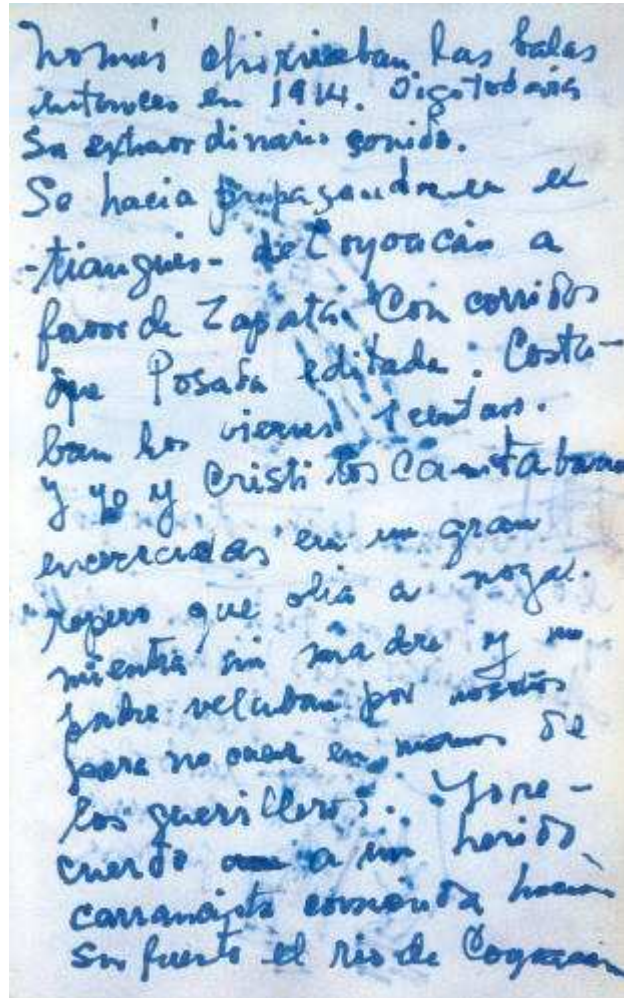 nomás chirriaban las balas
entonces en 1914. Oigo todavía
su extraordinario sonido.
Se hacia propaganda en el
-tianguis- de Coyoacán a
favor de Zapata. Con corridos
que Posada editada. Costa-
ban los viernes 1 centavo.
y yo y Cristi los Cantabamos
encerradas en un gran
ropero que olia a nogal.
mientras mi madre y mi
padre velaban por nosotros
para no caer en manos de
los guerilleros. Yo re-
cuerdo a un herido
carrancista corriendo hacia
su fuerte el rio de Coyoacán